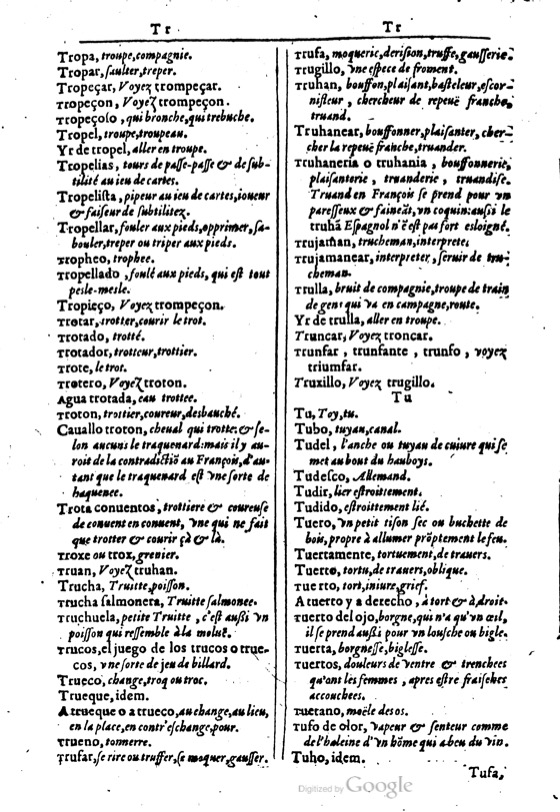 Tr
Tropa, troupe, compagnie.
Tropar, saulter, treper.
Tropeçar, Voyez trompeçar.
Tropeçon, Voyez trompeçon.
Tropeçoso, qui bronche, qui trebuche.
Tropel, troupe, troupeau.
Yr de tropel, aller en troupe.
Tropelias, tours de passe-passe & de sub-
tilité au ieu de cartes.
Tropelista, pipeur au ieu de cartes, ioueur
& faiseur de subtilitez.
Tropellar, fouler aux pieds, opprimer, sa-
bouler, treper ou triper aux pieds.
Tropheo, trophee.
Tropellado, foulé aux pieds, qui est tout
pesle-mesle.
Tropieço, Voyez trompeçon.
Trotar, trotter, courir le trot.
Trotado, trotté.
Trotador, trotteur, trottier.
Trote, le trot.
Trotero, Voyez troton.
Agua trotada, eau trottee.
Troton, trottier, coureur, desbauché.
Cauallo troton, cheual qui trotte: & se-
lon aucuns le traquenard: mais il y au-
roit de la contradictiō au François, d'au-
tant que le traquenard est vne sorte de
haquenee.
Trota conuentos, trottiere & coureuse
de conuent en conuent, vne qui ne fait
que trotter & courir çà & là.
Troxe ou trox, grenier.
Truan, Voyez truhan.
Trucha, Truitte, poisson.
Trucha salmonera, Truitte salmonee.
Truchuela, petite Truitte, c'est aussi vn
poisson qui ressemble à la moluë.
Trucos, el juego de los trucos o true-
cos, vne sorte de jeu de billard.
Trueco, change, troq ou troc.
Trueque, idem.
A trueque o a trueco, au change, au lieu,
en la place, en contr'eschange, pour.
Trueno, tonnerre.
Trufar, se rire ou truffer, se moquer, gausser.
Tr
Trufa, moquerie, derision, truffe, gausserie.
Trugillo, vne espece de froment.
Truhan, bouffon, plaisant, basteleur, escor-
nifleur, chercheur de repeuë franche,
truand.
Truhanear, bouffonner, plaisanter, cher-
cher la repeuë franche, truander.
Truhaneria o truhania, bouffonnerie,
plaisanterie, truanderie, truandise.
Truand en François se prend pour vn
paresseux & faineāt, vn coquin: aussi le
truhā Espagnol n'ē est pas fort esloigné.
Trujaman, trucheman, interprete.
Trujamanear, interpreter, seruir de tru-
cheman.
Trulla, bruit de compagnie, troupe de train
de gens qui va en campagne, route.
Yr de trulla, aller en troupe.
Truncar, Voyez troncar.
Trunfar, trunfante, trunfo, voyez
triumfar.
Truxillo, Voyez trugillo.
Tu
Tu, Toy, tu.
Tubo, tuyau, canal.
Tudel, l'anche ou tuyau de cuiure qui se
met au bout du hauboys.
Tudesco, Allemand.
Tudir, lier estroittement.
Tudido, estroittement lié.
Tuero, vn petit tison sec ou buchette de
bois, propre à allumer prōptement le feu.
Tuertamente, tortuement, de trauers.
Tuerto, tortu, de trauers, oblique.
Tuerto, tort, iniure, grief.
A tuerto y a derecho, à tort & à droit.
Tuerto del ojo, borgne, qui n'a qu'vn œil,
il se prend aussi pour vn lousche ou bigle.
Tuerta, borgnesse, biglesse.
Tuertos, douleurs de ventre & trenchees
qu'ont les femmes, apres estre fraisches
accouchees.
Tuetano, moële des os.
Tufo de olor, vapeur & senteur comme
de l'haleine d'vn hōme qui a beu du vin.
Tuho, idem.
Tufa,
Digitized by Google